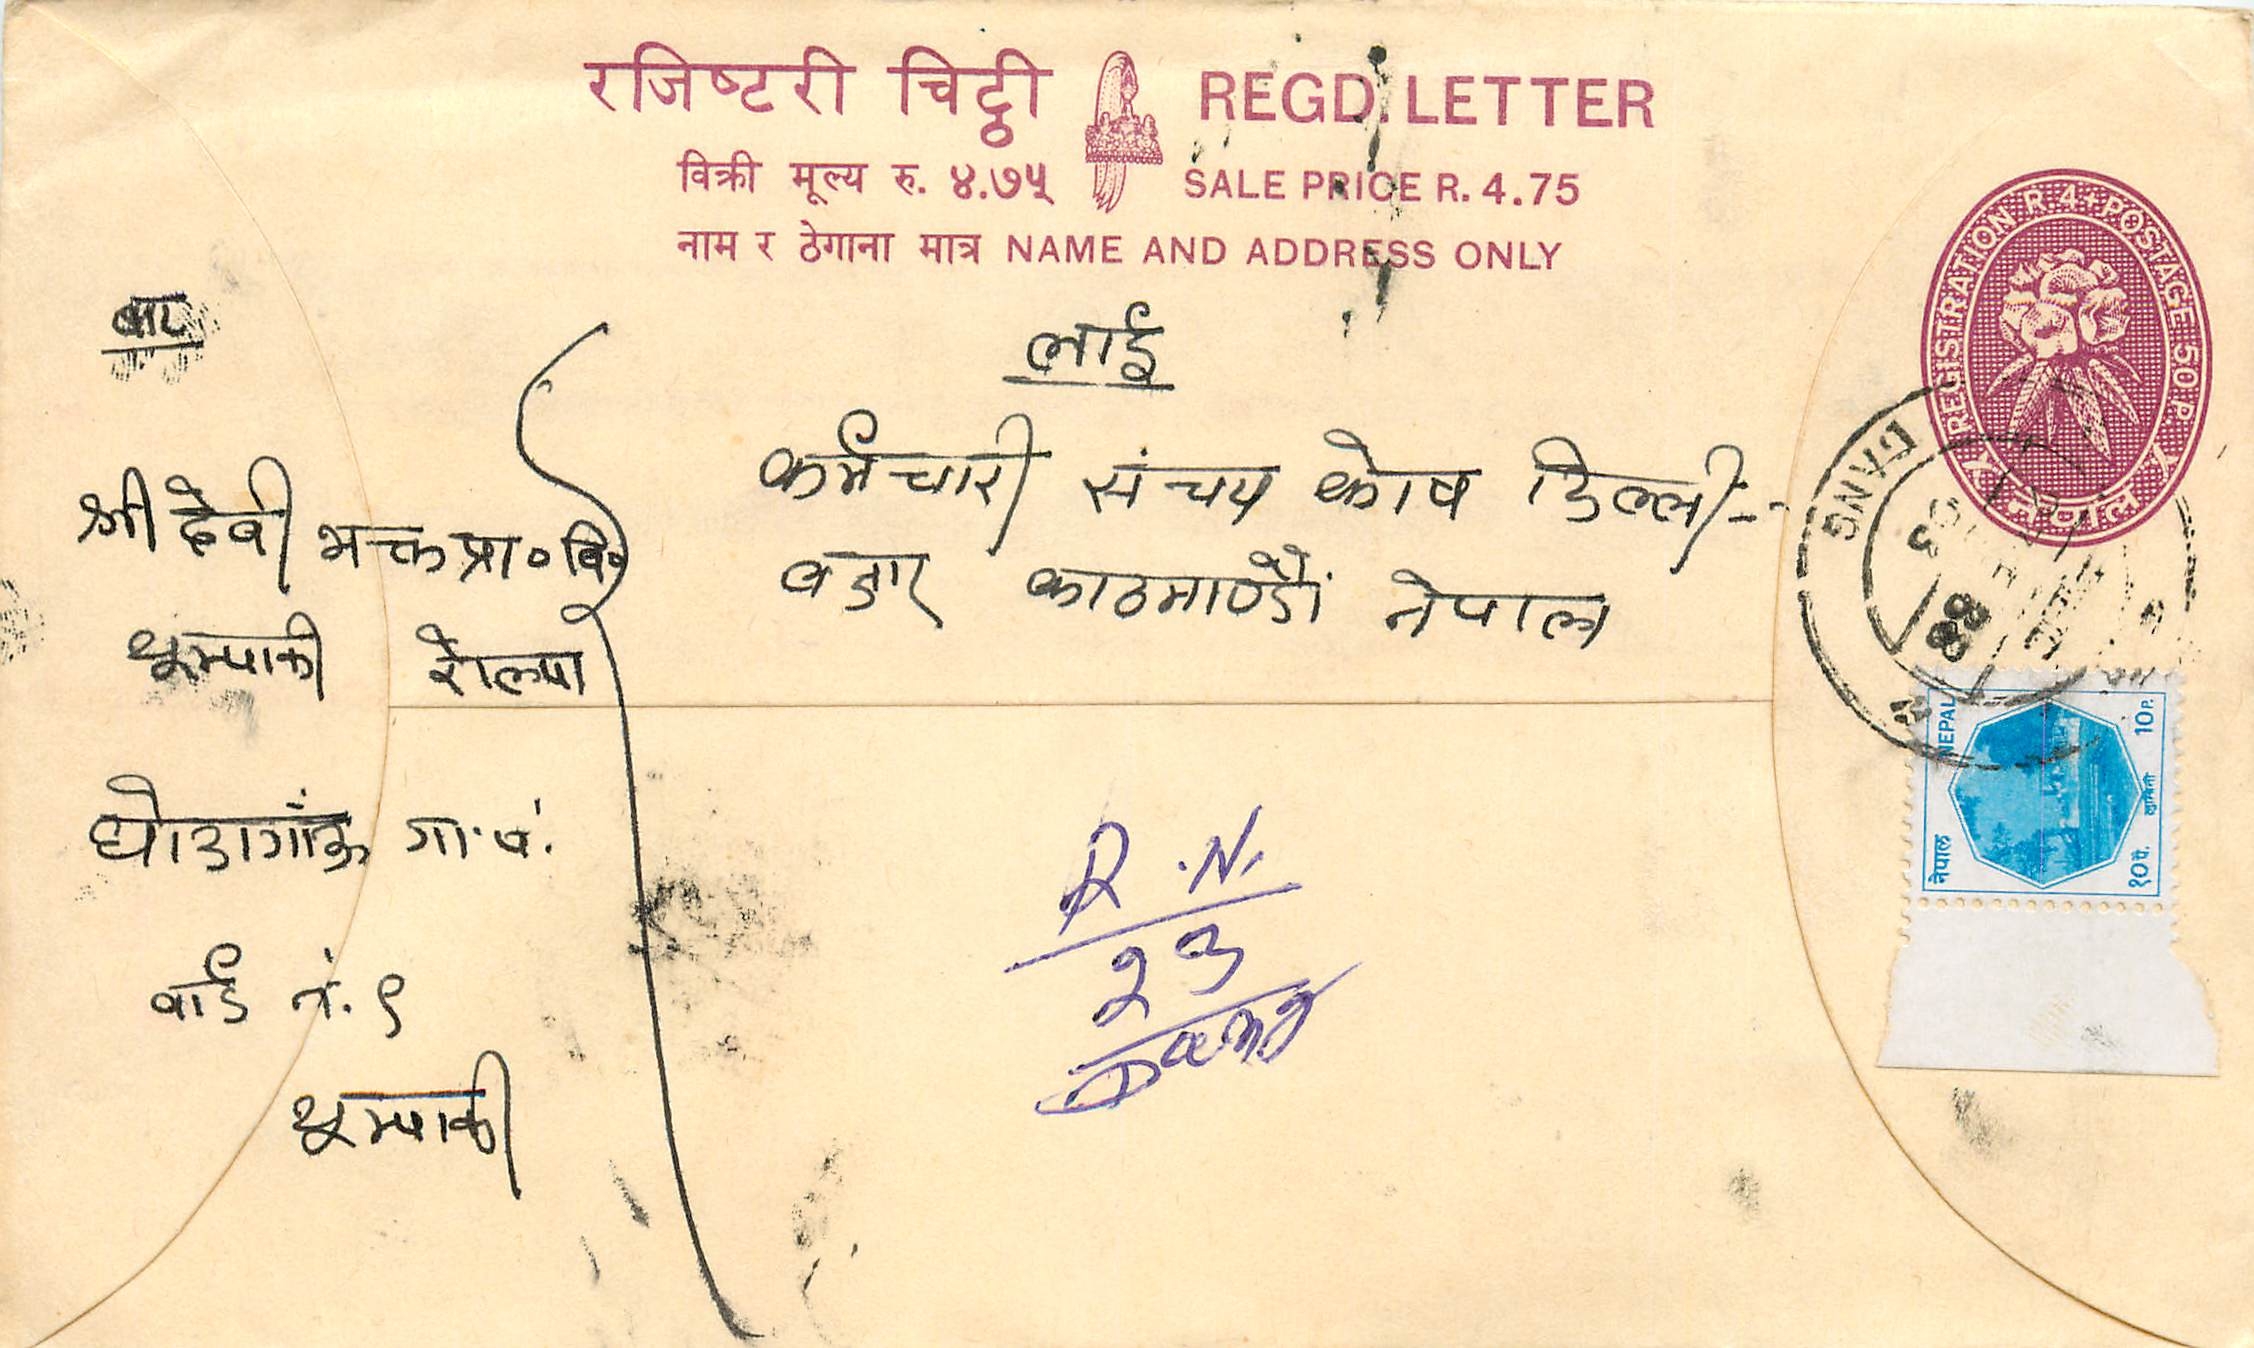 रजिष्टरी चिट्ठी REGD. LETTER
विक्री मूल्य रु. ४.७५ SALE PRICE R. 4.75
नाम र ठेगाना मात्र NAME AND ADDRESS ONLY
REGISTRATION R. 4 + POSTAGE 50 P.
नेपाल
DANG
88
बाट
श्री देवी भक्त प्रा० वि०
रोल्पा
घोडागाँऊ गा.पं.
वार्ड नं. ९
लाई
कर्मचारी संचय कोष डिल्ली--
बजार काठमाण्डौं नेपाल
R.N.
२३
NEPAL 10P.
लुम्बिनी
नेपाल १०पै.